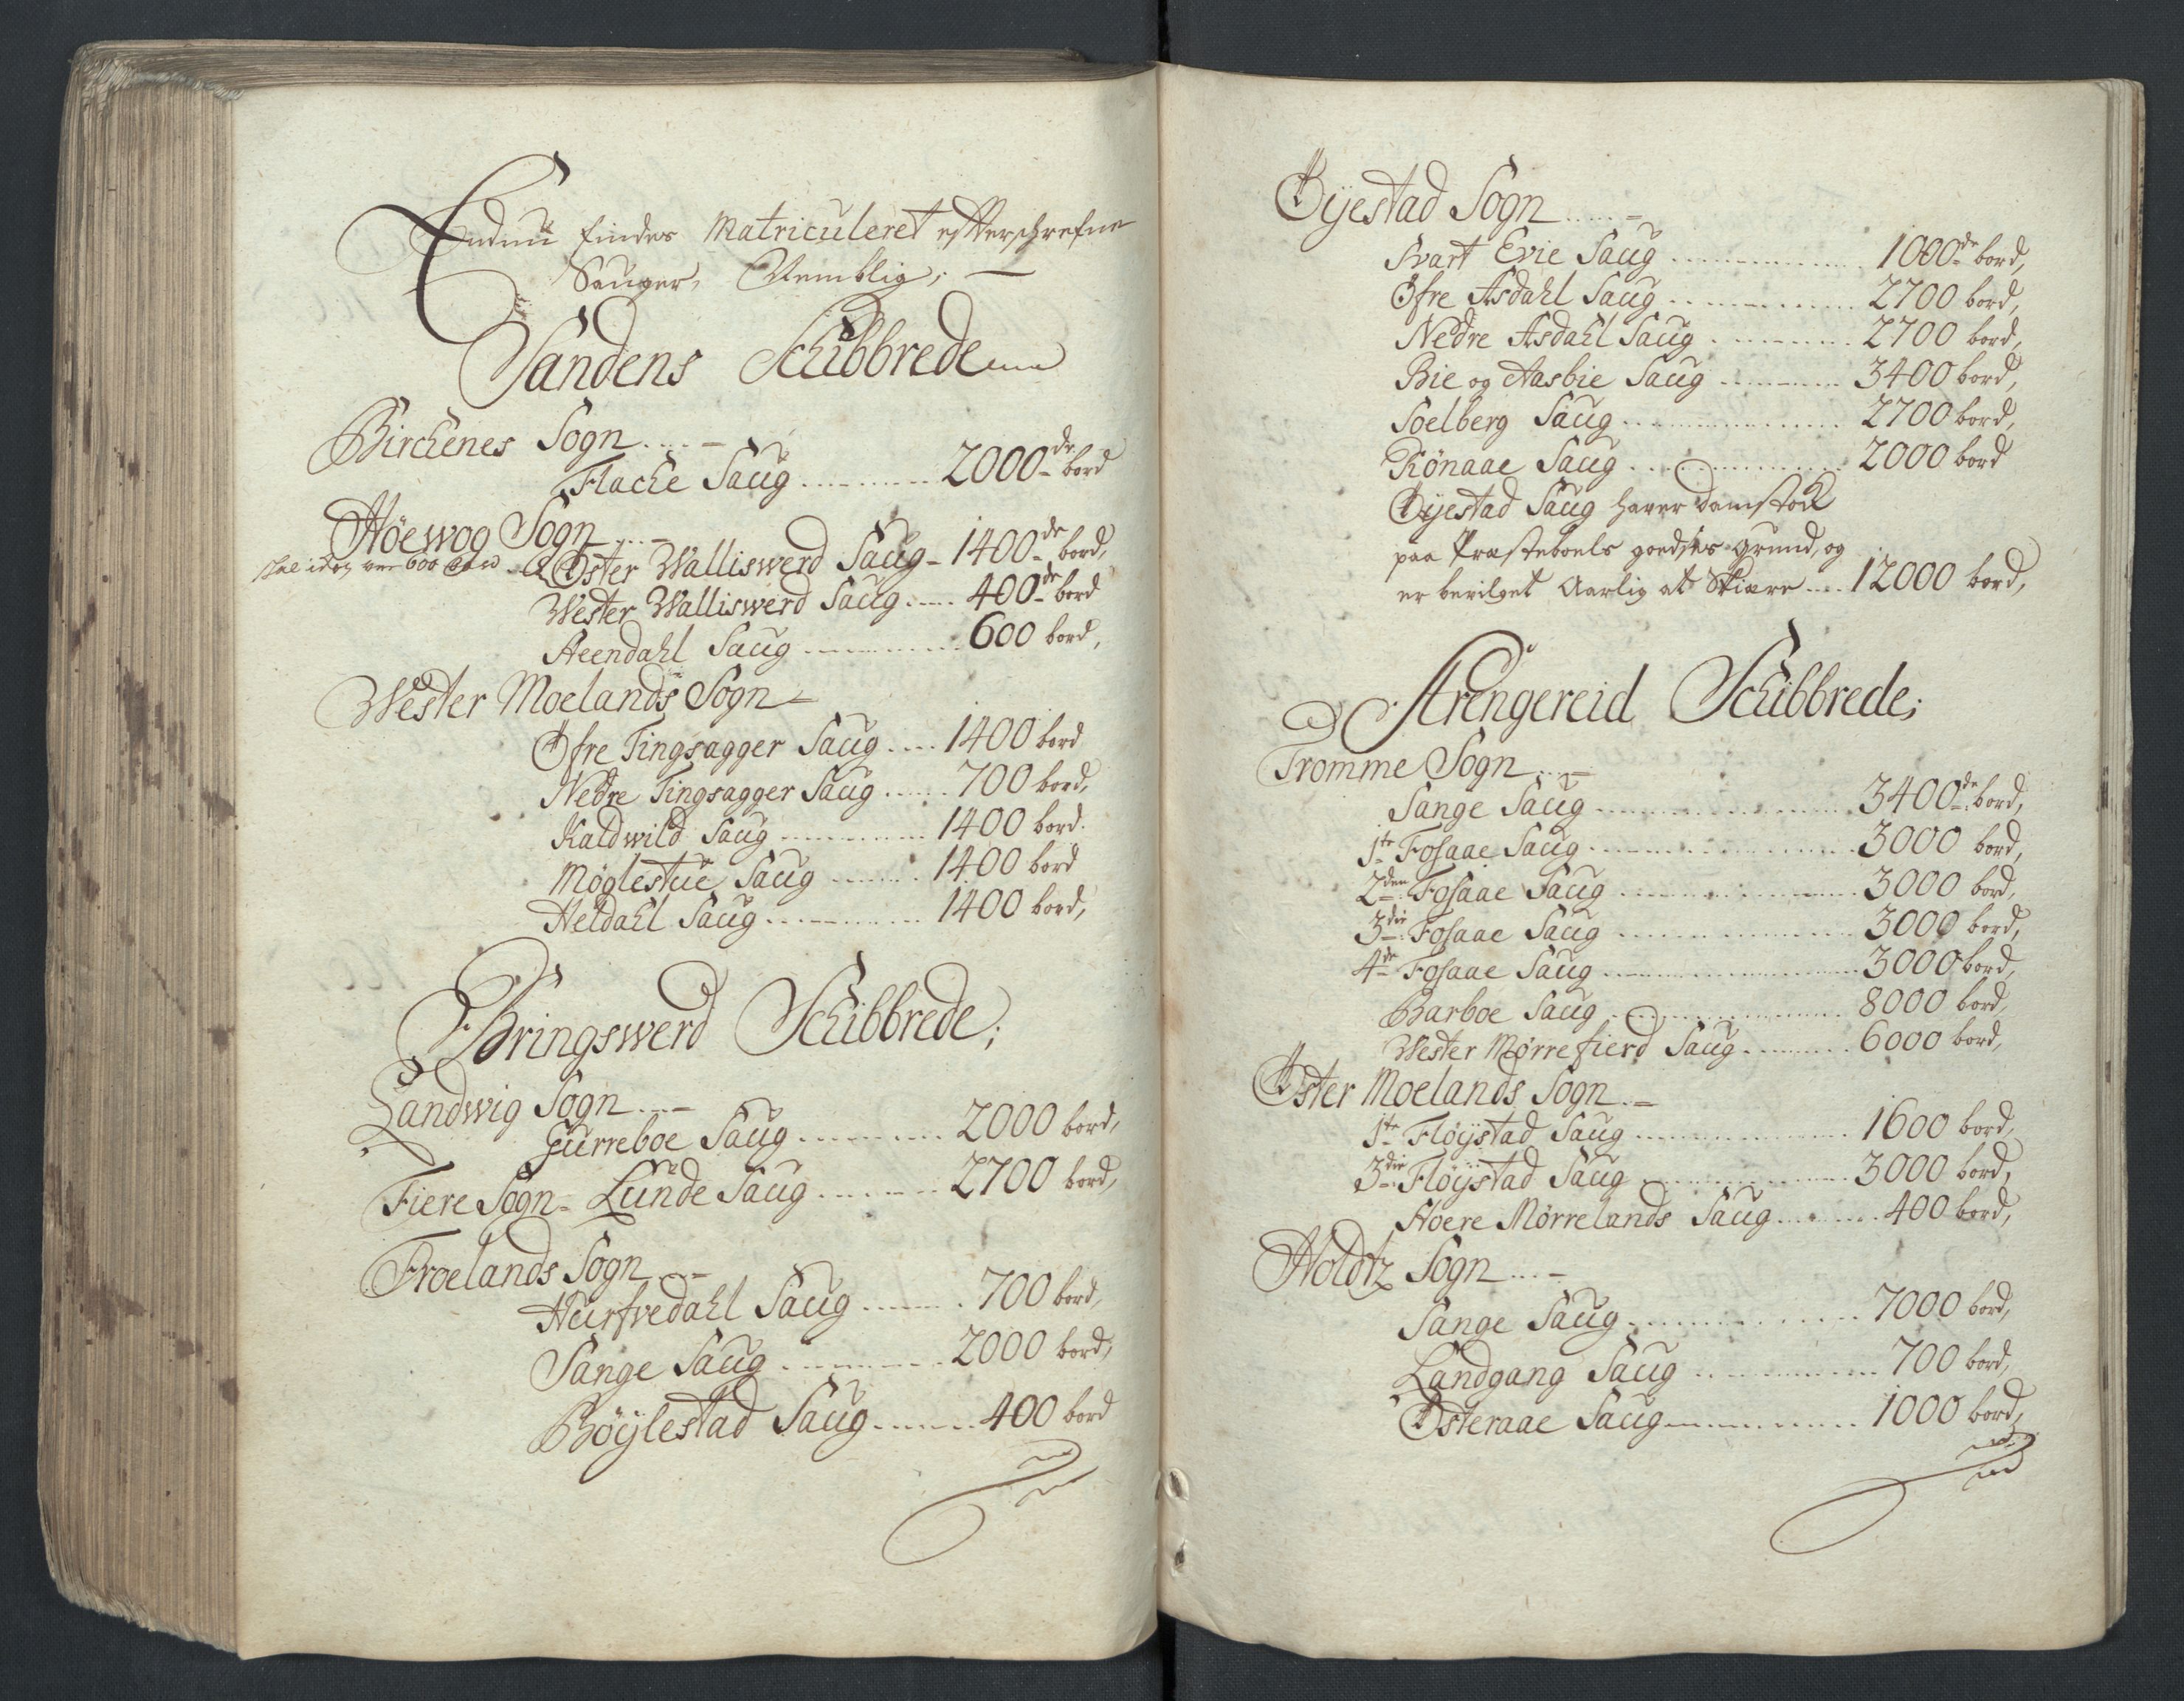 Endnu findes Matriculeret efterschrefne
Sauger, Nemblig; —
Sandens Schibbrede
Birchenes Sogn .... –
Flache Saug .......... 2000de bord
Höewog Sogn .... –
Öster Walliswerd Saug – 1400de bord,
600
Wester Walliswerd Saug ..... 400de bord
Aeendahl Saug .......... 600 bord,
Wester Moelands Sogn –
Öfre Tingsagger Saug .... 1400 bord
Nedre Tingsagger Saug ..... 700 bord,
Kaldwild Saug .......... 1400 bord.
Møglestue Saug ....... 1400 bord
Heldahl Saug .......... 1400 bord,
Bringswerd Schibbrede;
Landwig Sogn .... –
Gurreboe Saug .......... 2000 bord,
Fiere Sogn – Lunde Saug ........ 2700 bord,
Froelands Sogn .... –
Hurfvedahl Saug ....... 700 bord,
Sange Saug .......... 2000 bord,
Böÿlestad Saug ....... 400 bord
Öÿestad Sogn ..... –
Svart Evie Saug .............. 1000de bord,
Öfre Asdahl Saug ............ 2700 bord,
Nedre Asdahl Saug .......... 2700 bord,
Bie og Aasbie Saug ......... 3400 bord,
Soelberg Saug ............... 2700 bord,
Rønaae Saug ............... 2000 bord
Öÿestad Saug haver Damstok
paa Præsteboels goedsis grund, og
er bevilget Aarlig at Skiære .... 12000 bord,
Strengereid Schibbrede;
Tromme Sogn .... –
Sange Saug .................. 3400de bord,
1te Fosaae Saug .................. 3000 bord,
2den Fosaae Saug ................ 3000 bord,
3die Fosaae Saug ................ 3000 bord,
4de Fosaae Saug .................. 3000 bord,
Barboe Saug ................ 8000 bord,
Wester Mørrefierd Saug ........ 6000 bord,
Öster Moelands Sogn . –
1te Fløÿstad Saug ............... 1600 bord,
3die Fløÿstad Saug .............. 3000 bord,
Hoere Mørrelands Saug ....... 400 bord,
Holdtz Sogn .... –
Sange Saug ................ 7000 bord,
Landgang Saug ............. 700 bord,
Österaae Saug ............. 1000 bord,